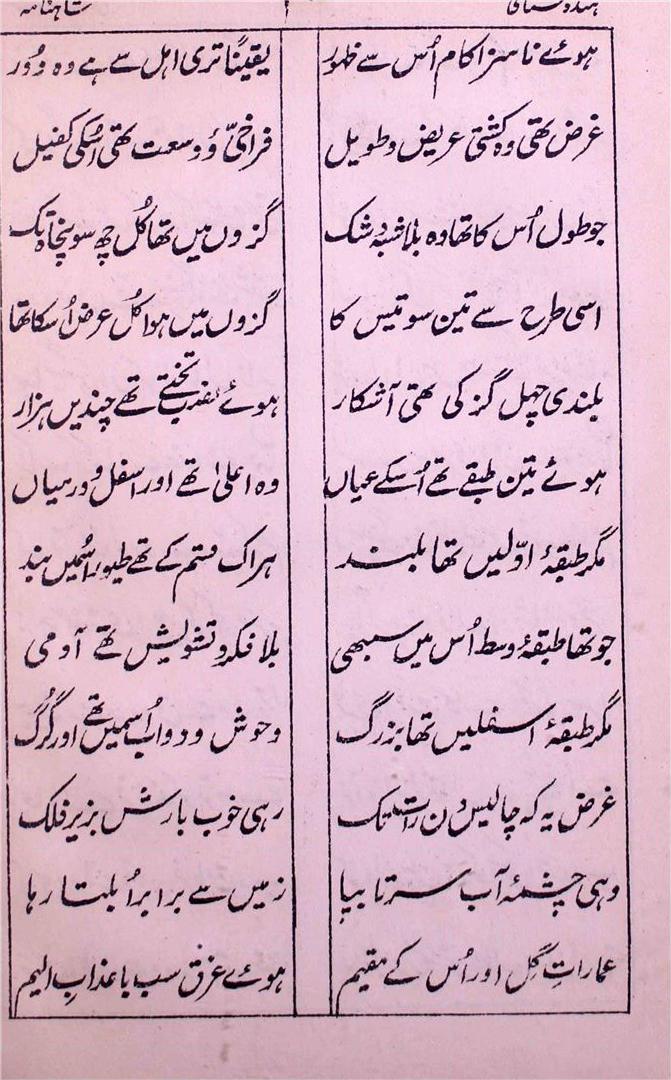 ہندوستانی ۴ شاہنامہ
ہوئے ناسزا کام اُس سے ظہور یقیناً تری اہل سے ہے وہ دُور
غرض تھی وہ کشتی عریض و طویل فراخیّ و وسعت تھی اُسکی کفیل
جو طول اُس کا تھا وہ بلا شبہ و شک گزوں میں تھا کُل چھ سو پنجاہ تک
اسی طرح سے تین سو تیس کا گزوں میں ہوا کُل عرض اُسکا تھا
بلندی چہل گز کی تھی آشکار ہوئے نصب تختے تھے چندیں ہزار
ہوئے تین طبقے تھے اُسکے عیاں وہ اعلیٰ تھے اور اسفل و درمیاں
مگر طبقۂ اوّلیں تھا بلند ہر اک قسم کے تھے طیور اُسمیں بند
جو تھا طبقۂ وسط اُس میں سبھی بلا فکر و تشویش تھے آدمی
مگر طبقۂ اسفلیں تھا بزرگ وحوش و دواب اُسمیں تھے اور گُرگ
غرض یہ کہ چالیس دن رات تک رہی خوب بارش بزیر فلک
وہی چشمۂ آب سرتا بپا زمیں سے برابر اُبلتا رہا
عمارتِ گِل اور اُس کے مقیم ہوئے غرق سب با عذابِ الیم